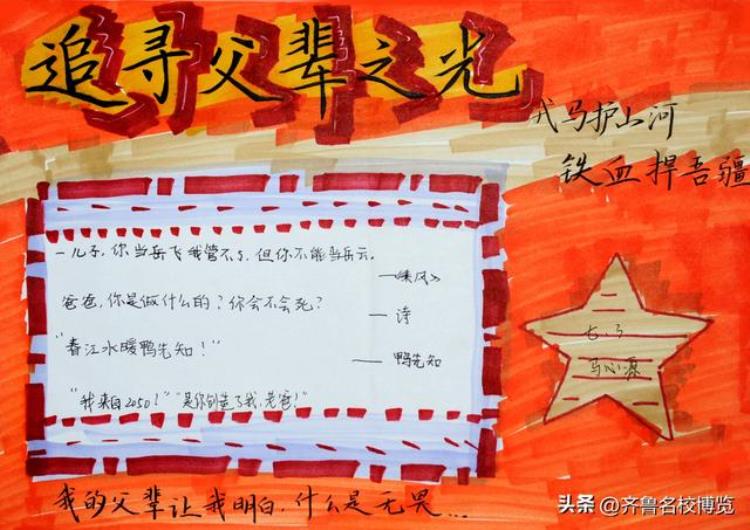 追寻父辈之光
戎马护山河
铁血捍吾疆
一儿子,你当岳飞我管不了,但你不能当岳云。
—《乘风》
爸爸,你是做什么的?你会不会死?
— 诗
"春江水暖鸭先知!"
—— 鸭先知
"我来自2050!""是你创造了我,老爸!"
七.3
马心源
我的父辈让我明白,什么是无畏...
头条 @齐鲁名校博览